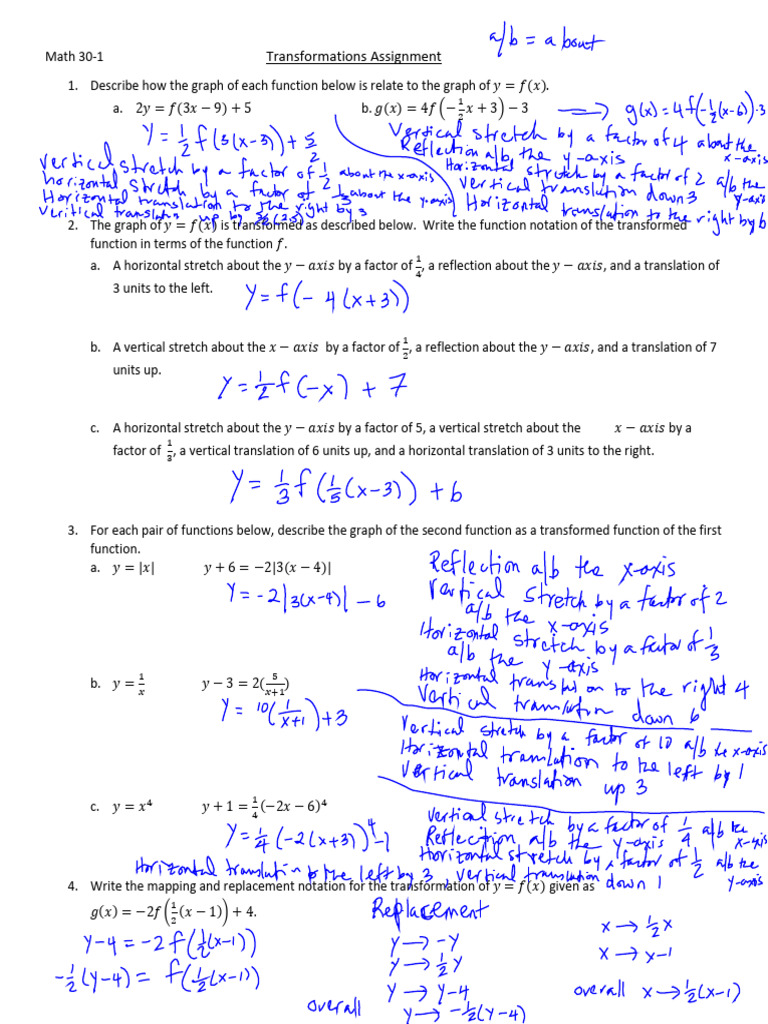 a/b = about
Math 30-1 Transformations Assignment
1. Describe how the graph of each function below is relate to the graph of y = f(x).
a. 2y = f(3x − 9) + 5 b. g(x) = 4f(−1/2x + 3) − 3 → g(x) = 4f(-1/2(x-6))-3
y = 1/2 f(3(x-3)) + 5/2
Vertical stretch by a factor of 1/2 about the x-axis
horizontal stretch by a factor of 1/3 about the y-axis
Horizontal translation to the right by 3
Vertical translation up by 5/2 (2.5)
Vertical stretch by a factor of 4 about the x-axis
Reflection a/b the y-axis
Horizontal stretch by a factor of 2 a/b the y-axis
Vertical translation down 3
Horizontal translation to the right by 6
2. The graph of y = f(x) is transformed as described below. Write the function notation of the transformed
function in terms of the function f.
a. A horizontal stretch about the y − axis by a factor of 1/4, a reflection about the y − axis, and a translation of
3 units to the left.
y = f(-4(x+3))
b. A vertical stretch about the x − axis by a factor of 1/2, a reflection about the y − axis, and a translation of 7
units up.
y = 1/2 f(-x) + 7
c. A horizontal stretch about the y − axis by a factor of 5, a vertical stretch about the x − axis by a
factor of 1/3, a vertical translation of 6 units up, and a horizontal translation of 3 units to the right.
y = 1/3 f(1/5(x-3)) + 6
3. For each pair of functions below, describe the graph of the second function as a transformed function of the first
function.
a. y = |x| y + 6 = −2|3(x − 4)|
y = -2|3(x-4)| - 6
Reflection a/b the x-axis
Vertical stretch by a factor of 2
a/b the x-axis
Horizontal stretch by a factor of 1/3
a/b the y-axis
Horizontal translation to the right 4
Vertical translation down 6
b. y = 1/x y − 3 = 2(5/x+1)
y = 10(1/x+1) + 3
Vertical stretch by a factor of 10 a/b the x-axis
Horizontal translation to the left by 1
Vertical translation up 3
c. y = x⁴ y + 1 = 1/4(−2x − 6)⁴
y = 1/4(-2(x+3))⁴ - 1
Vertical stretch by a factor of 1/4 a/b the x-axis
Reflection a/b the y-axis
Horizontal stretch by a factor of 1/2 a/b the y-axis
Horizontal translation to the left by 3, vertical translation down 1
4. Write the mapping and replacement notation for the transformation of y = f(x) given as
g(x) = −2f(1/2(x − 1)) + 4.
y-4 = -2f(1/2(x-1))
-1/2(y-4) = f(1/2(x-1))
Replacement
y → -y
y → 1/2y
y → y-4
overall y → -1/2(y-4)
x → 1/2x
x → x-1
overall x → 1/2(x-1)